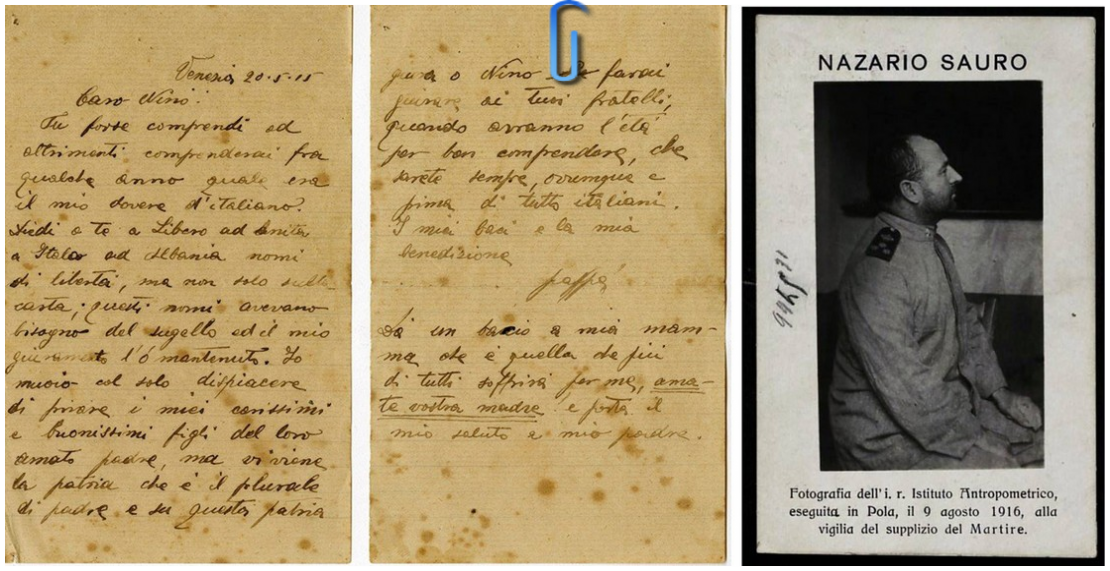 Venezia 20-5-15
Caro Nino.
Tu forse comprendi od
altrimenti comprenderai fra
qualche anno quale era
il mio dovere d'italiano.
Diedi a te a Libero ad Anita
a Italo ad Albania nomi
di libertà, ma non solo sulla
carta; questi nomi avevano
bisogno del sugello ed il mio
giuramento l'ò mantenuto. Io
muoio col solo dispiacere
di privare i miei carissimi
e buonissimi figli del loro
amato padre, ma vi viene
la patria che è il plurale
di padre e su questa patria
giura o Nino farai
giurare ai tuoi fratelli,
quando avranno l'età
per ben comprendere, che
sarete sempre, ovunque e
prima di tutto italiani.
I miei baci e la mia
benedizione
pappà
Dà un bacio a mia mam-
ma che è quella che più
di tutti soffrirà per me, ama-
te vostra madre e porta il
mio saluto a mio padre.
NAZARIO SAURO
Fotografia dell' i. r. Istituto Antropometrico,
eseguita in Pola, il 9 agosto 1916, alla
vigilia del supplizio del Martire.